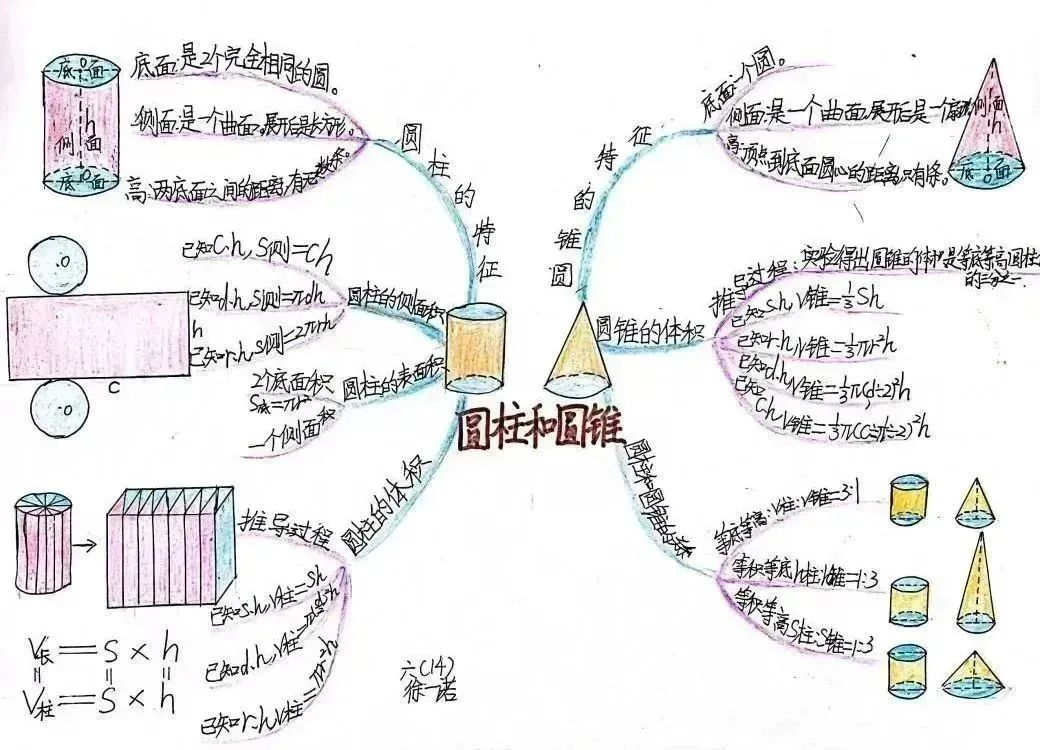 圆柱和圆锥
圆柱的特征
底面:是2个完全相同的圆。
侧面:是一个曲面。展开后是长方形。
高:两底面之间的距离,有无数条。
底面
O
侧面
h
底面
O
圆柱的侧面积
已知C.h,S侧=Ch
已知d.h,S侧=πdh
已知r.h,S侧=2πrh
圆柱的表面积
2个底面积
S底=πr²
一个侧面积
.O
h
C
.O
圆柱的体积
推导过程
已知S.h,V柱=Sh
已知d.h,V柱=
已知r.h,V柱=πr²h
V长=S×h
V柱=S×h
圆锥的特征
底面:一个圆。
侧面:是一个曲面,展开后是一个扇形
高:顶点到底面圆心的距离只有一条。
侧面
h
底面
O
圆锥的体积
推导过程:实验得出圆锥的体积是等底等高圆柱
的三分之一
已知S.h,V锥=⅓Sh
已知r.h,V锥=⅓πr²h
已知d.h,V锥=⅓π(d÷2)²h
已知C.h,V锥=⅓π(C÷π÷2)²h
圆柱和圆锥的关系
等底等高:V柱:V锥=3:1
等积等底h柱:h锥=1:3
等积等高S柱:S锥=1:3
六(14)
徐一诺